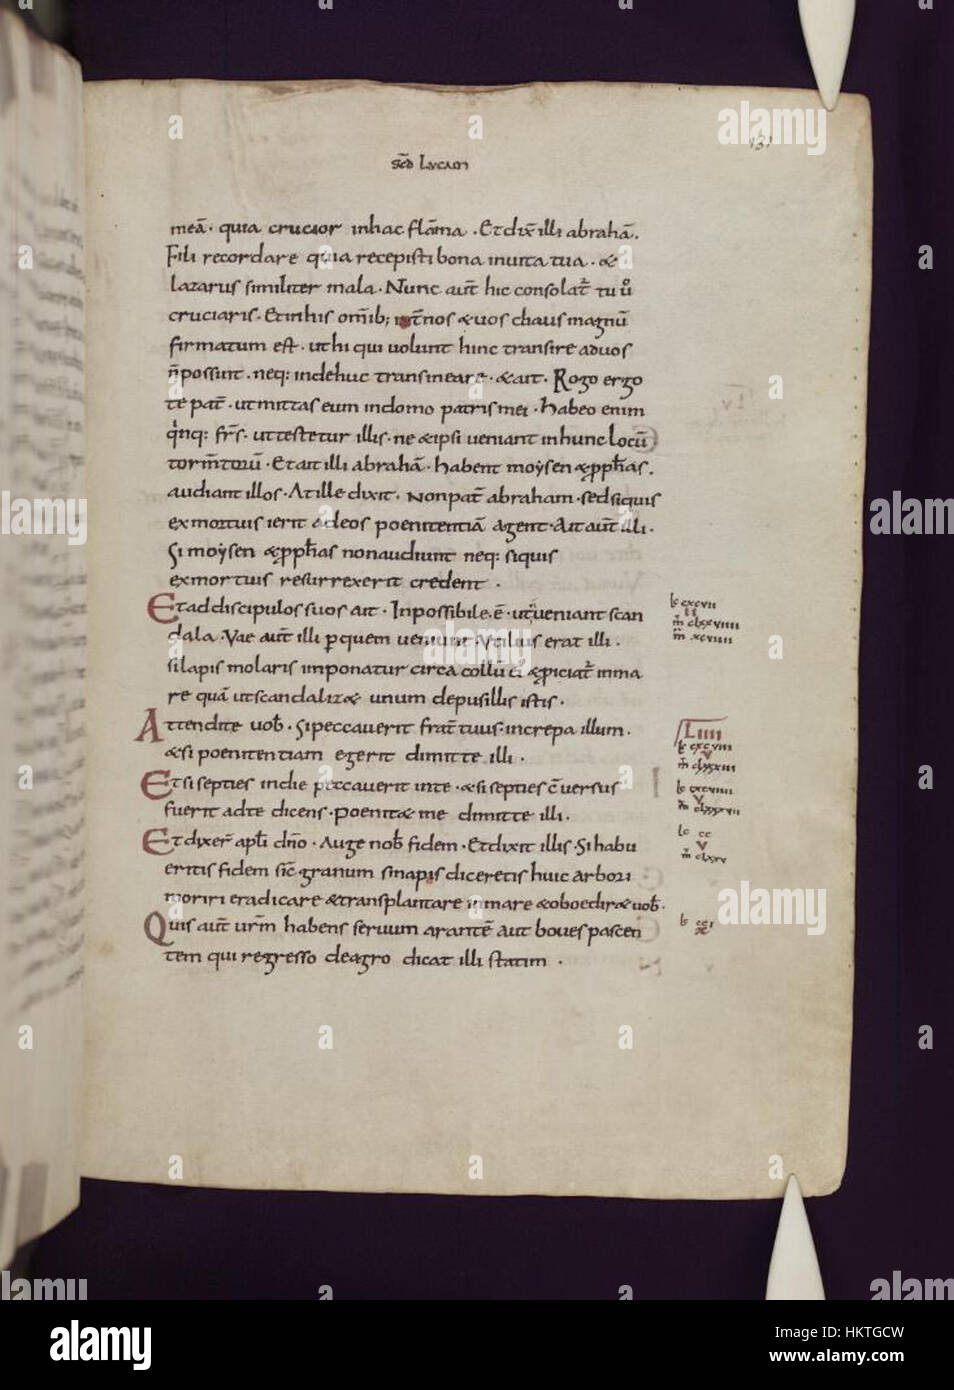 131
scd Lucam
meā · quia crucior inhac flāma · Et dix̄ illi abrahā .
Fili recordare quia recepisti bona inuita tua · &
lazarus similiter mala · Nunc aut̄ hic consolat̄ tu ů
cruciaris · Et inhis om̄ib; int̄ nos & uos chaus magnū
firmatum est · ut hi qui uolunt hinc transire aduos
n̄ possint · neq: inde huc transmeare · & ait · Rogo ergo
te pat̄ · ut mittas eum indomo patris mei · habeo enim
q̇nq: fr̄s · ut testetur illis · ne & ipsi ueniant inhunc locū
torm̄torū · Et ait illi abrahā · habent moÿsen & pph̄as ·
audiant illos · At ille dixit · Non pat̄ abraham · sed siquis
exmortuis ierit adeos poenitentiā agent · Ait aut̄ illi ·
Si moÿsen & pph̄as nonaudiunt neq: siquis
exmortuis resurrexerit credent ·
Et addiscipulos suos ait · Inpossibile · ē · ut ueniant scan
dala · Vae aut̄ illi p quem ueniunt · Vtilius erat illi ·
silapis molaris imponatur circa collū ei & piciat̄ inma
re quā ut scandaliz& unum depusillis istis ·
Attendite uob̄ · Si peccauerit frat̄ tuus · increpa illum ·
& si poenitentiam egerit dimitte illi ·
Et si septies indie peccauerit inte · & si septies c̄uersus
fuerit adte dicens · poenit& me dimitte illi ·
Et dixer̄ apl̄i dn̄o · Auge nob̄ fidem · Et dixit illis · Si habu
eritis fidem sic̄ granum sinapis diceretis huic arbori
moriri eradicare & transplantare inmare & oboedir& uob̄ ·
Quis aut̄ urm̄ habens seruum arantē aut boues pascen
tem qui regresso deagro dicat illi statim ·
lc cxcvii
ii
m̄ clxxviiii
m̄ xcviiii
Liiii
lc cxcviii
v
lc cxcviiii
v
lc cc
v
m̄ clxxv
lc cci
x
alamy
alamy
alamy
alamy
alamy
alamy
Image ID: HKTGCW
www.alamy.com